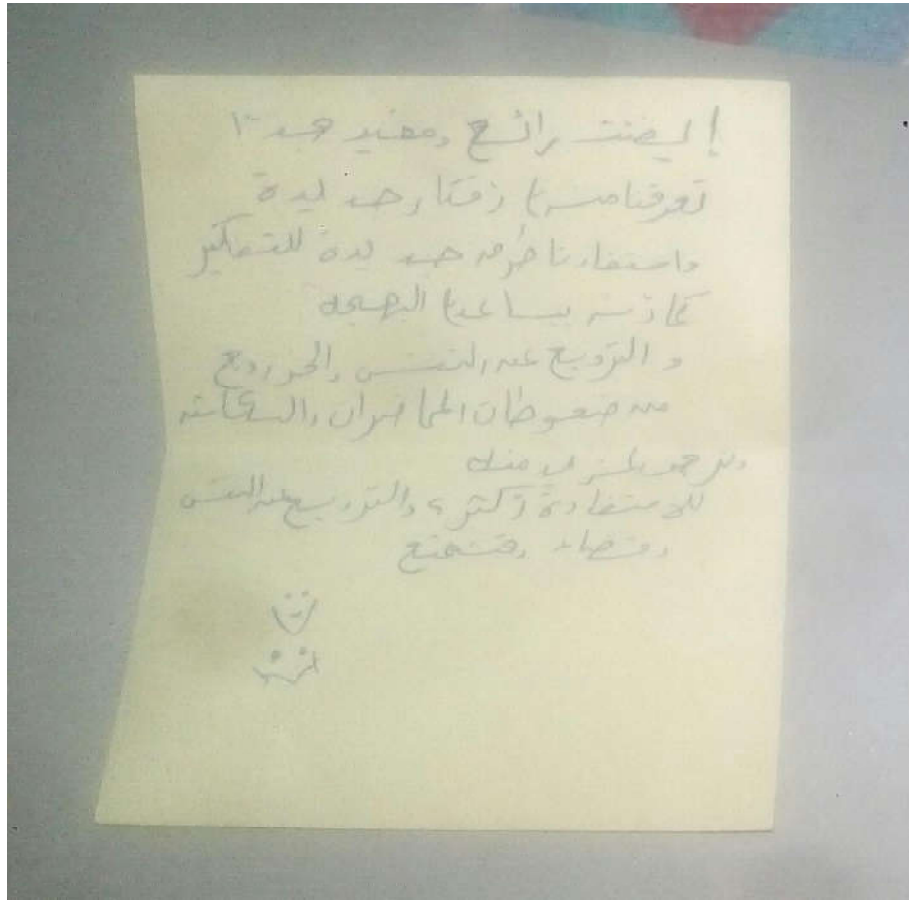 إيفنت رائع ومفيد جدا
تعرفنا منه أفكار جديدة
واستفادنا طرق جديدة للتفكير
كما أنه يساعد البهجه
و الترويح عن النفس والخروج
من ضغوطات المحاضرات والسكاشن
ونرجو المزيد منه
للاستفادة أكثر، والترويح عن النفس
وقضاء وقت ممتع